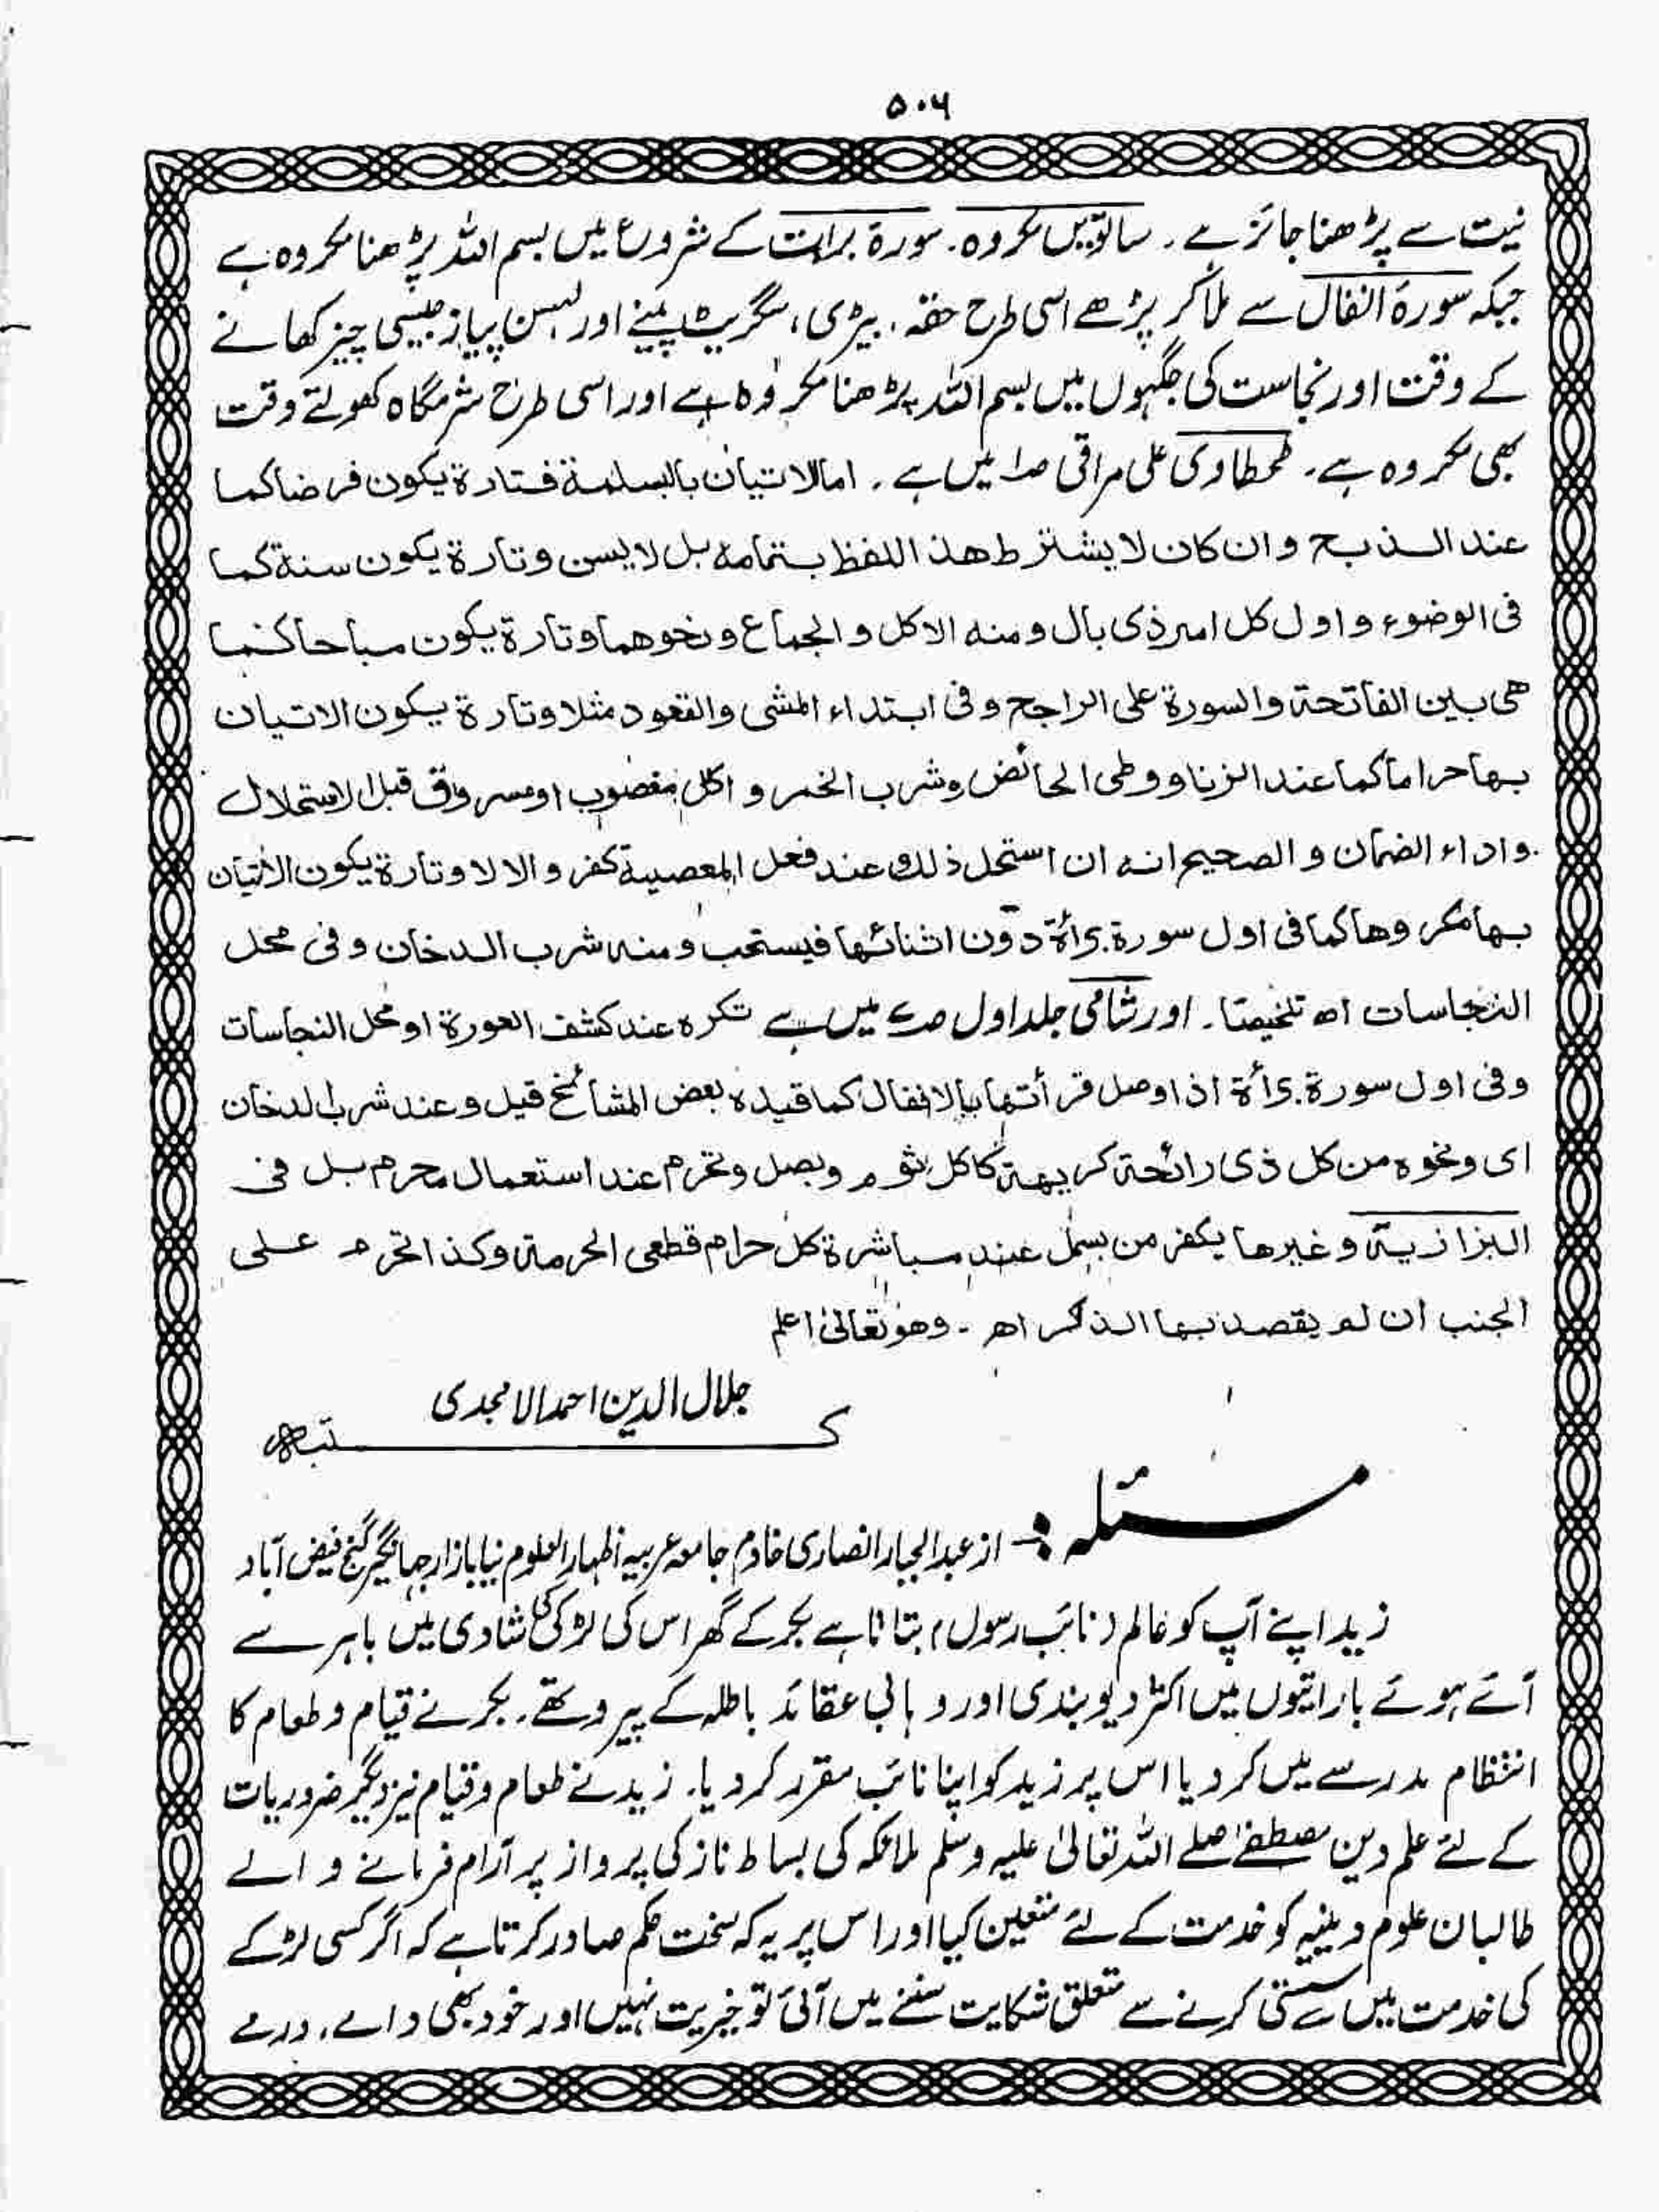 ۵۰۶
نیت سے پڑھنا جائز ہے۔ ساتویں مکروہ۔ سورۃ برات کے شروع میں بسم اللہ پڑھنا مکروہ ہے
جبکہ سورۂ انفال سے ملا کر پڑھے اسی طرح حقہ، بیڑی، سگریٹ پینے اور لہسن پیاز جیسی چیز کھانے
کے وقت اور نجاست کی جگہوں میں بسم اللہ پڑھنا مکروہ ہے اور اسی طرح شرمگاہ کھولتے وقت
بھی مکروہ ہے۔ طحطاوی علی مراقی میں ہے۔ اما الاتیان بالبسلمۃ فتارۃ یکون فرضا کما
عند الذبح وان کان لا یشترط ھذا اللفظ بتمامہ بل لا یسن وتارۃ یکون سنۃ کما
فی الوضوء واول کل امر ذی بال ومنہ الاکل والجماع ونحوھما وتارۃ یکون مباحا کما
ھی بین الفاتحۃ والسورۃ علی الراجح وفی ابتداء المشی والقعود مثلا وتارۃ یکون الاتیان
بھا حراما کما عند الزنا ووطی الحائض وشرب الخمر واکل مغصوب او مسروق قبل الاستحلال
واداء الضمان والصحیح انہ ان استحل ذلک عند فعل المعصیۃ کفر والا لا وتارۃ یکون الاتیان
بھا مکروھا کما فی اول سورۃ برأۃ دون اثنائھا فیستحب ومنہ شرب الدخان وفی محل
النجاسات اھ تلخیصًا۔ اور شامی جلد اول میں ہے تکرہ عند کشف العورۃ او محل النجاسات
وفی اول سورۃ برأۃ اذا وصل قرأتھا بالانفال کما قیدہ بعض المشائخ قیل وعند شرب الدخان
ای ونحوہ من کل ذی رائحۃ کریھۃ کاکل ثوم وبصل وتحرم عند استعمال محرم بل فی
البزازیۃ وغیرھا یکفر من بسمل عند مباشرۃ کل حرام قطعی الحرمۃ وکذا تحرم علی
الجنب ان لم یقصد بھا الذکر اھ۔ وھو تعالیٰ اعلم
جلال الدین احمد الامجدی
کتبہ
مسئلہ:۔ از عبد الجبار انصاری خادم جامعہ عربیہ اظہار العلوم نیا بازار جہانگیر گنج فیض آباد
زید اپنے آپ کو عالم (نائب رسول) بتاتا ہے بکر کے گھر اس کی لڑکی کی شادی میں باہر سے
آئے ہوئے باراتیوں میں اکثر دیوبندی اور وہابی عقائد باطلہ کے پیرو تھے۔ بکر نے قیام و طعام کا
انتظام مدرسے میں کر دیا اس پر زید کو اپنا نائب مقرر کر دیا۔ زید نے طعام و قیام نیز دیگر ضروریات
کے لئے علم دین مصطفےٰ صلے اللہ تعالیٰ علیہ وسلم ملائکہ کی بساط ناز کی پرواز پر آرام فرمانے والے
طالبان علوم دینیہ کو خدمت کے لئے متعین کیا اور اس پر یہ کہ سخت حکم صادر کرتا ہے کہ اگر کسی لڑکے
کی خدمت میں سستی کرنے سے متعلق شکایت سننے میں آئی تو خیریت نہیں اور خود بھی دامے، درمے